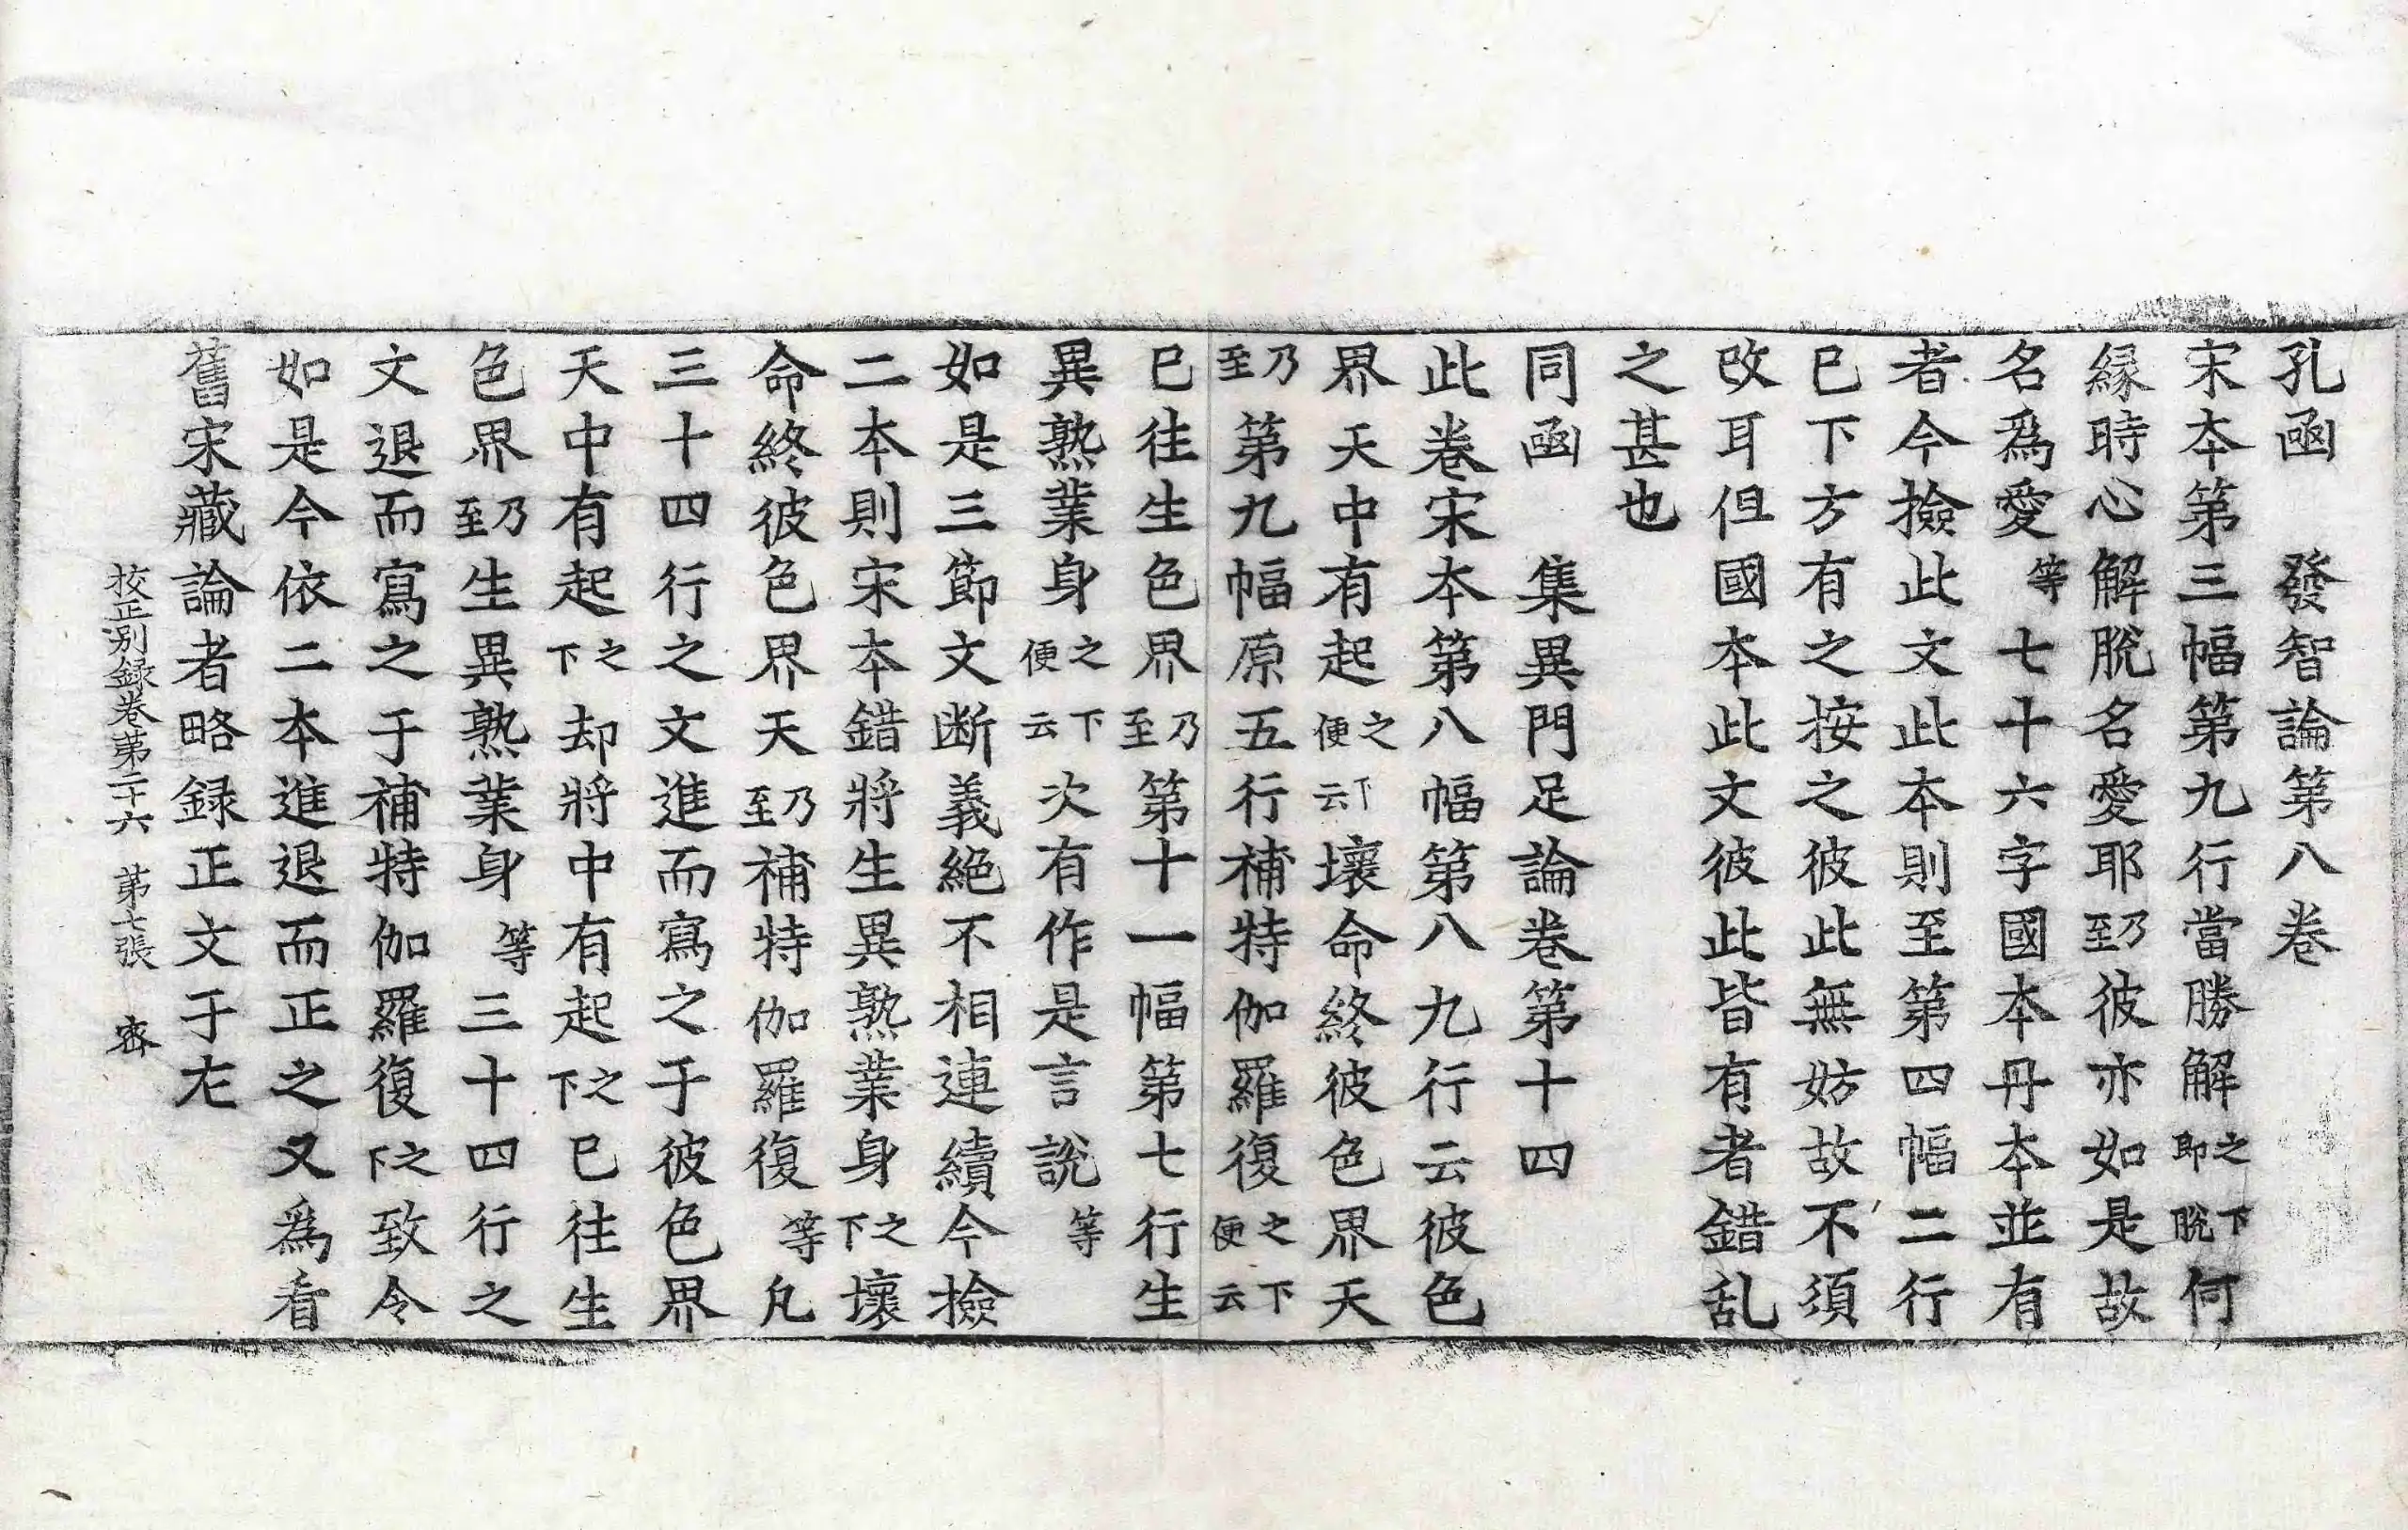 孔函　發智論第八卷
宋本第三幅第九行當勝解之下即脫何
縁時心解脫名愛耶乃至彼亦如是故
名爲愛等七十六字國本丹本並有
者今撿此文此本則至第四幅二行
巳下方有之按之彼此無妨故不須
改耳但國本此文彼此皆有者錯乱
之甚也
同函　集異門足論卷第十四
此卷宋本第八幅第八九行云彼色
界天中有起之下便云壞命終彼色界天
乃至第九幅原五行補特伽羅復之下便云
巳往生色界乃至第十一幅第七行生
異熟業身之下便云次有作是言說等
如是三節文断義絕不相連續今撿
二本則宋本錯將生異熟業身之下壞
命終彼色界天乃至補特伽羅復等凡
三十四行之文進而寫之于彼色界
天中有起之下却將中有起之下巳往生
色界乃至生異熟業身等三十四行之
文退而寫之于補特伽羅復之下致令
如是今依二本進退而正之又爲看
舊宋藏論者略録正文于左
校正别録卷苐二十六　苐七張　宻